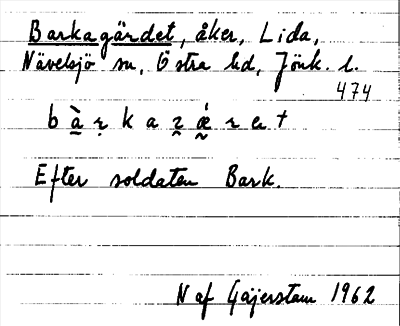 Barkagärdet, åker, Lida,
Nävelsjö sn, Östra hd, Jönk. l.
474
Efter soldaten Bark.
N af Gäjerstam 1962